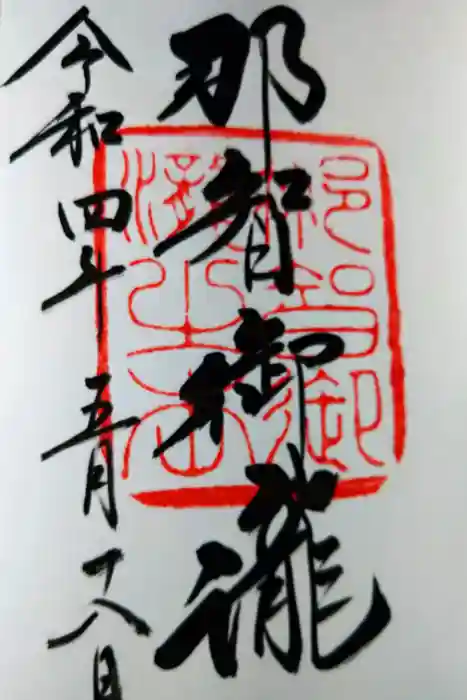 那智御瀧
令和四年五月十八日